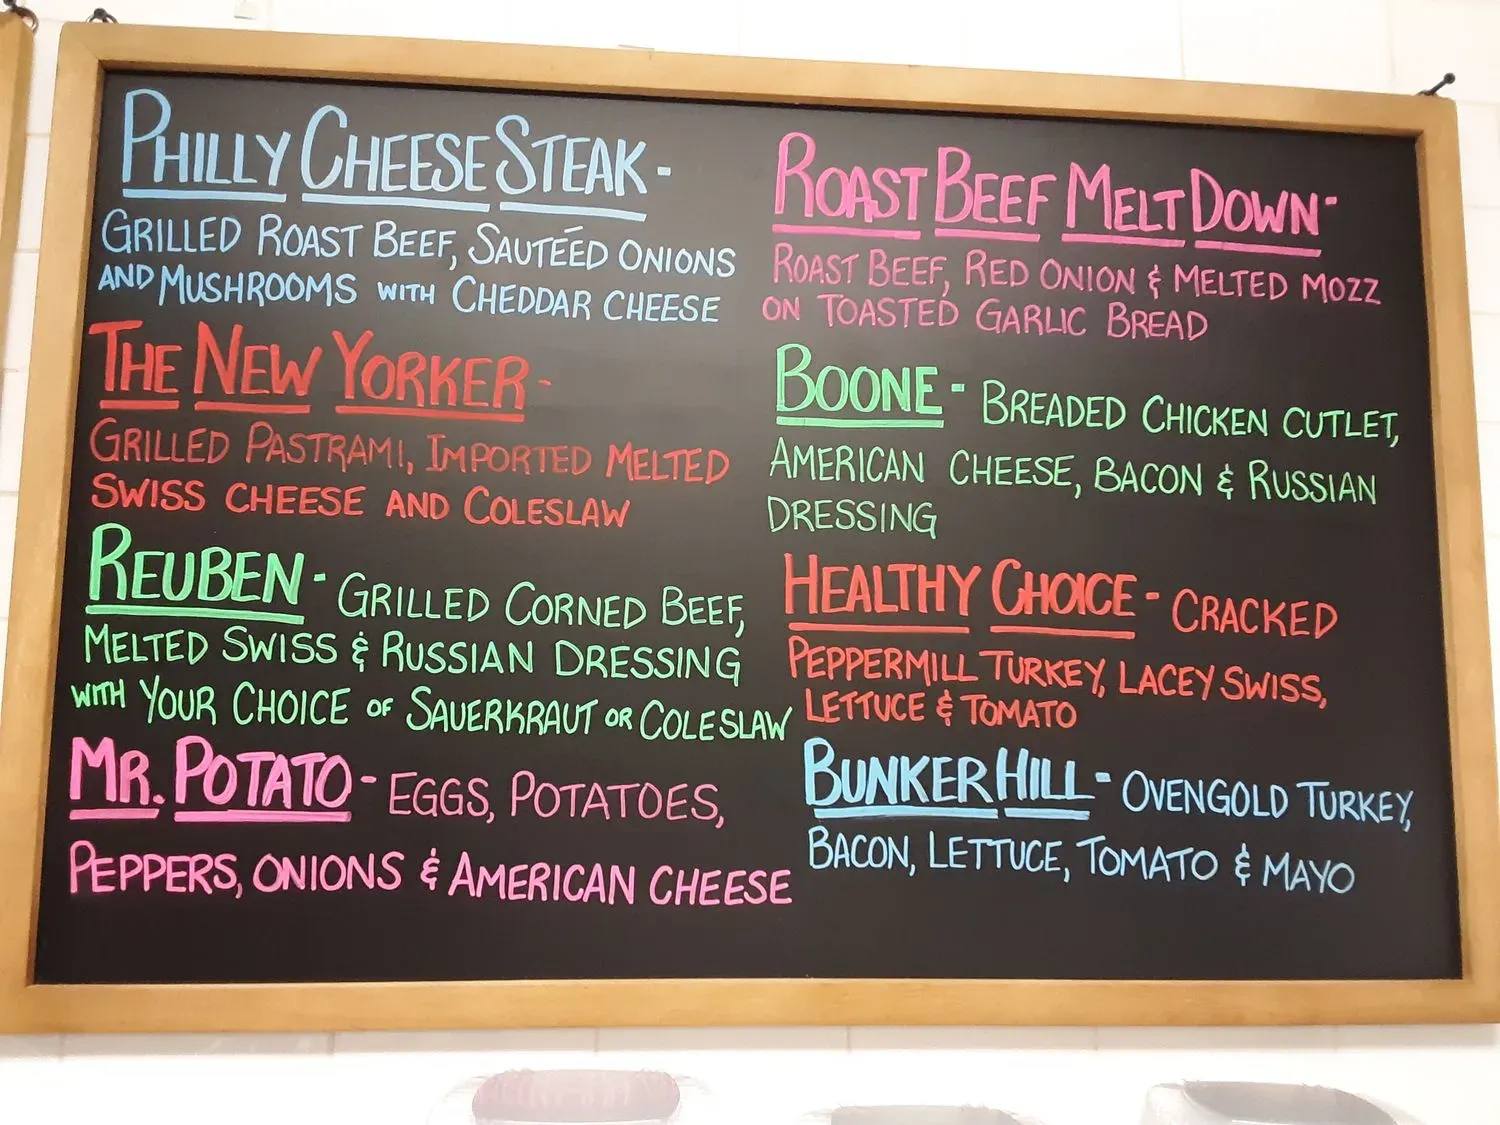 PHILLY CHEESE STEAK -
GRILLED ROAST BEEF, SAUTÉED ONIONS
AND MUSHROOMS WITH CHEDDAR CHEESE
THE NEW YORKER -
GRILLED PASTRAMI, IMPORTED MELTED
SWISS CHEESE AND COLESLAW
REUBEN - GRILLED CORNED BEEF,
MELTED SWISS & RUSSIAN DRESSING
WITH YOUR CHOICE OF SAUERKRAUT OR COLESLAW
MR. POTATO - EGGS, POTATOES,
PEPPERS, ONIONS & AMERICAN CHEESE
ROAST BEEF MELT DOWN -
ROAST BEEF, RED ONION & MELTED MOZZ
ON TOASTED GARLIC BREAD
BOONE - BREADED CHICKEN CUTLET,
AMERICAN CHEESE, BACON & RUSSIAN
DRESSING
HEALTHY CHOICE - CRACKED
PEPPERMILL TURKEY, LACEY SWISS,
LETTUCE & TOMATO
BUNKER HILL - OVENGOLD TURKEY,
BACON, LETTUCE, TOMATO & MAYO